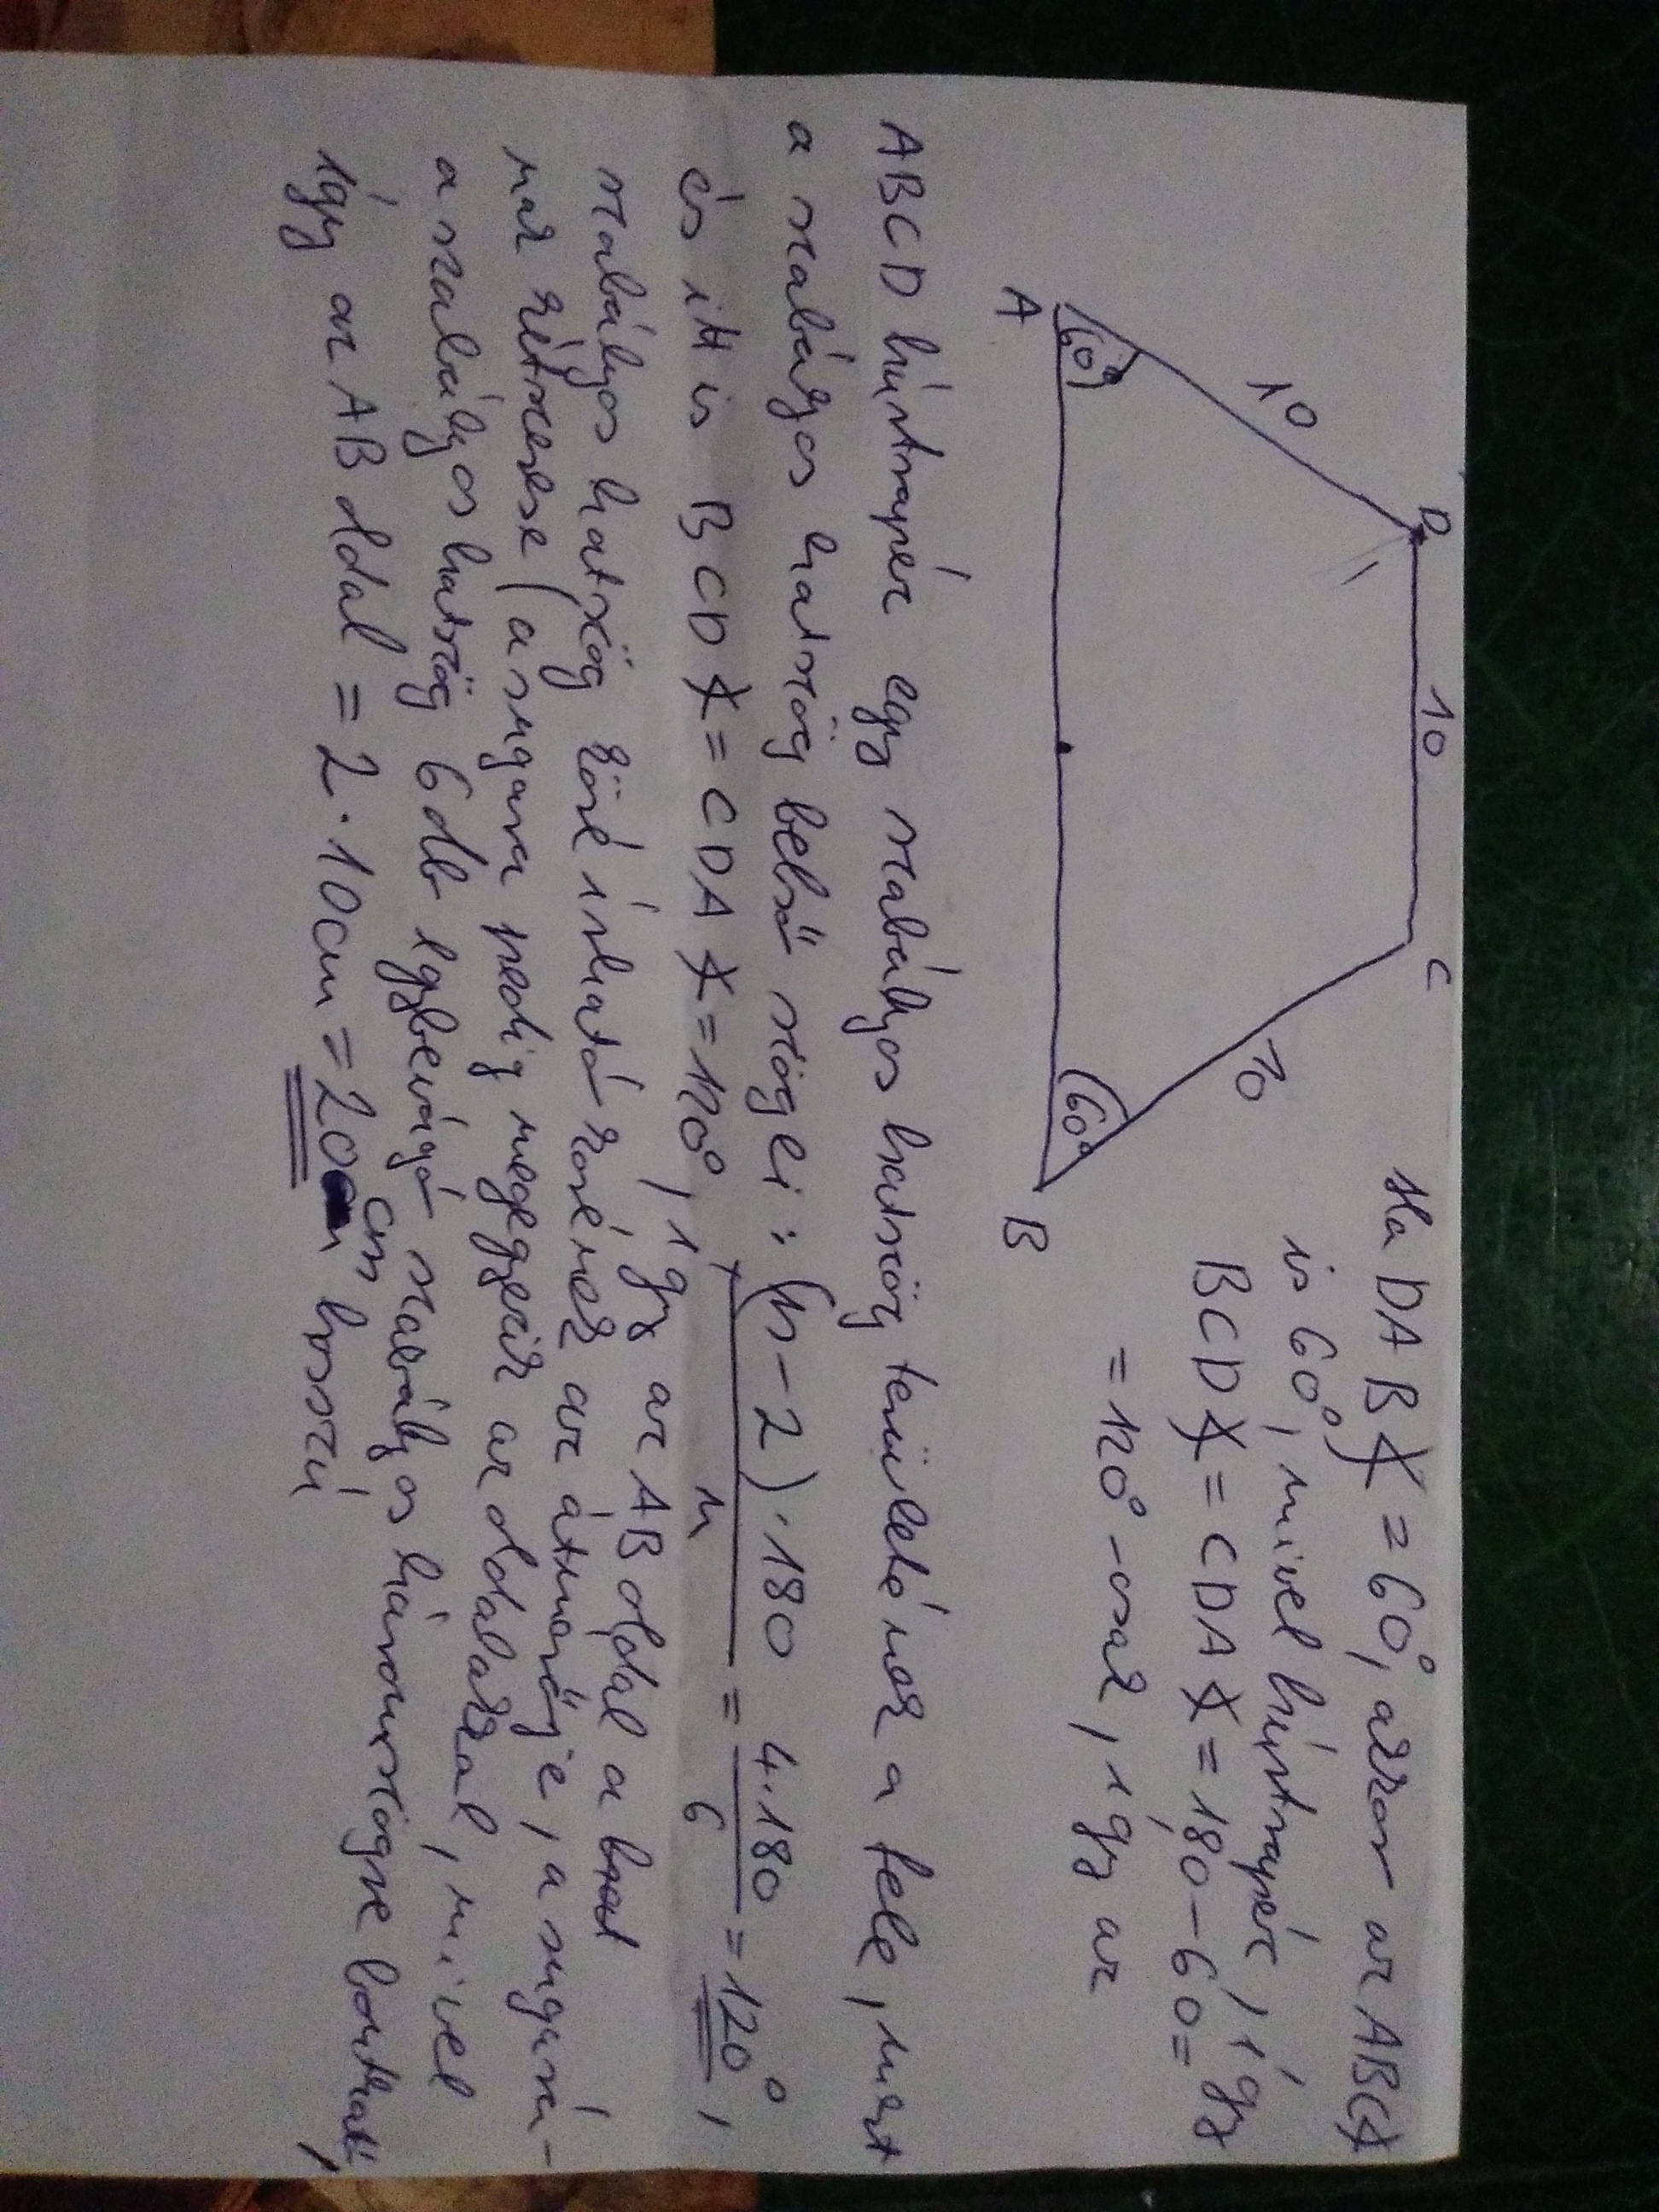 Ha DAB∢ = 60°, akkor az ABC∢
is 60°, mivel húrtrapéz, így
BCD∢ = CDA∢ = 180 - 60 =
= 120° -osak, így az
D
C
10
10
10
60°
60°
A
B
ABCD húrtrapéz egy szabályos hatszög területének a fele, mert
a szabályos hatszög belső szögei: (n-2)·180/n = 4·180/6 = 120°,
és itt is BCD∢ = CDA∢ = 120°, így az AB oldal a
szabályos hatszög köré írható körének az átmérője, a sugará-
nak kétszerese (a sugara pedig megegyezik az oldalakkal, mivel
a szabályos hatszög 6 db egybevágó szabályos háromszögre bontható),
így az AB oldal = 2·10cm = 20 cm hosszú